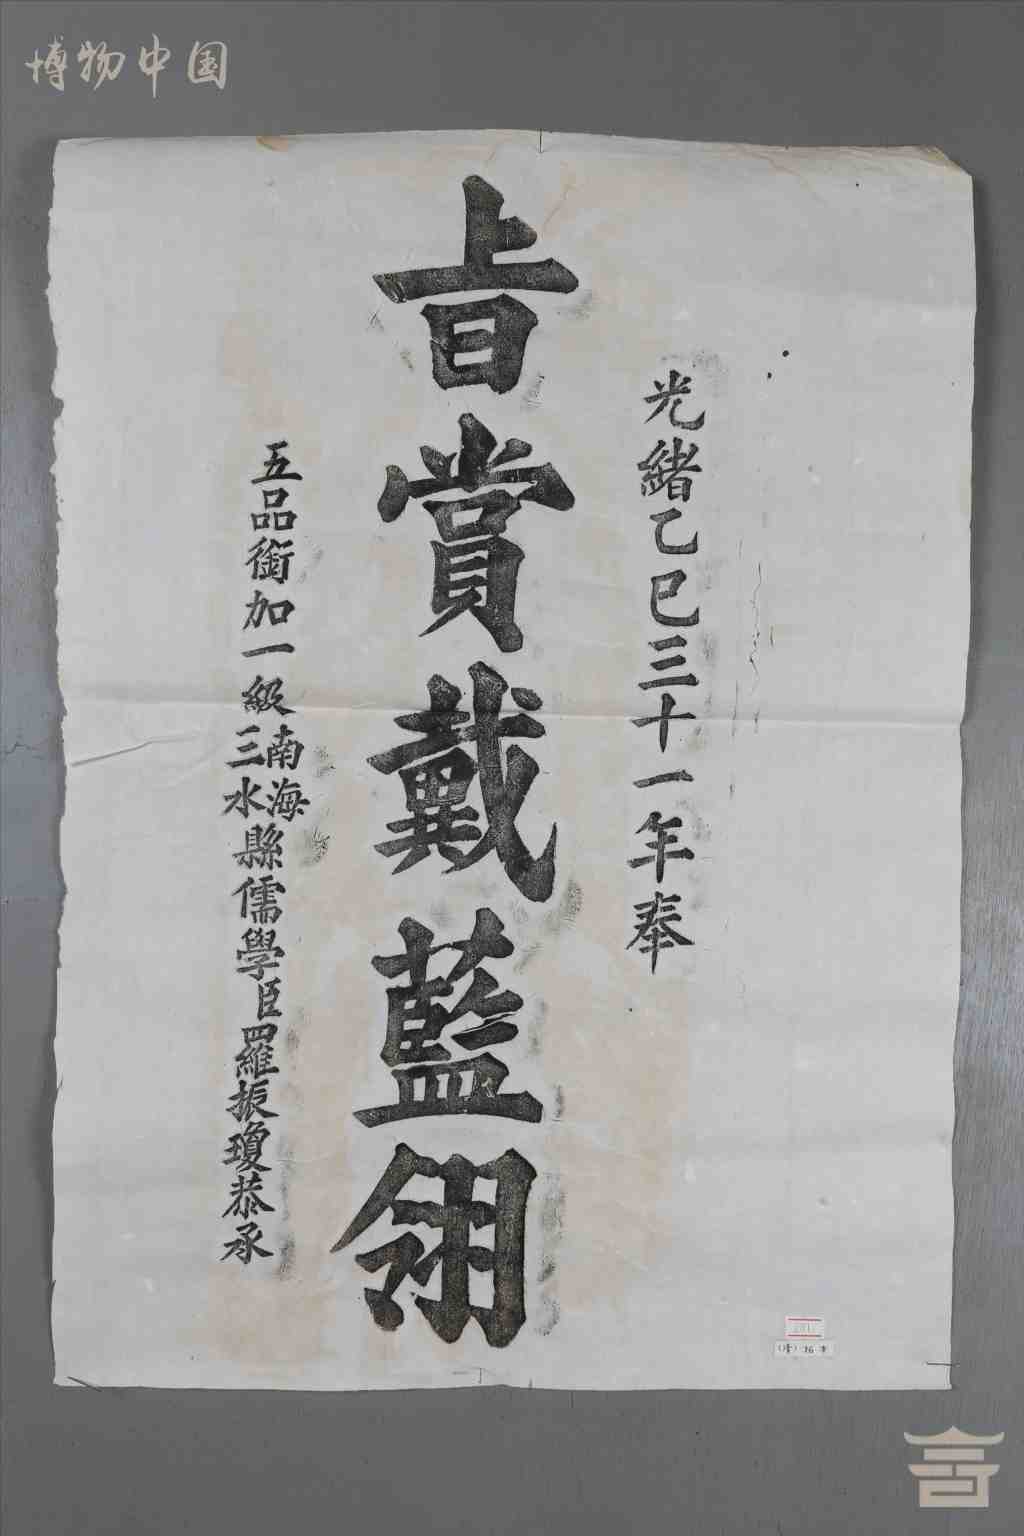 博物中国
光緒乙巳三十一年奉
旨賞戴藍翎
五品銜加一級南海三水縣儒學臣羅振瓊恭承